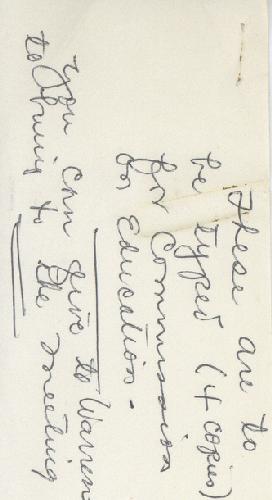 These are to
be typed (4 copies)
for Commission
on Education -
You can give to Warren
to bring to the meeting